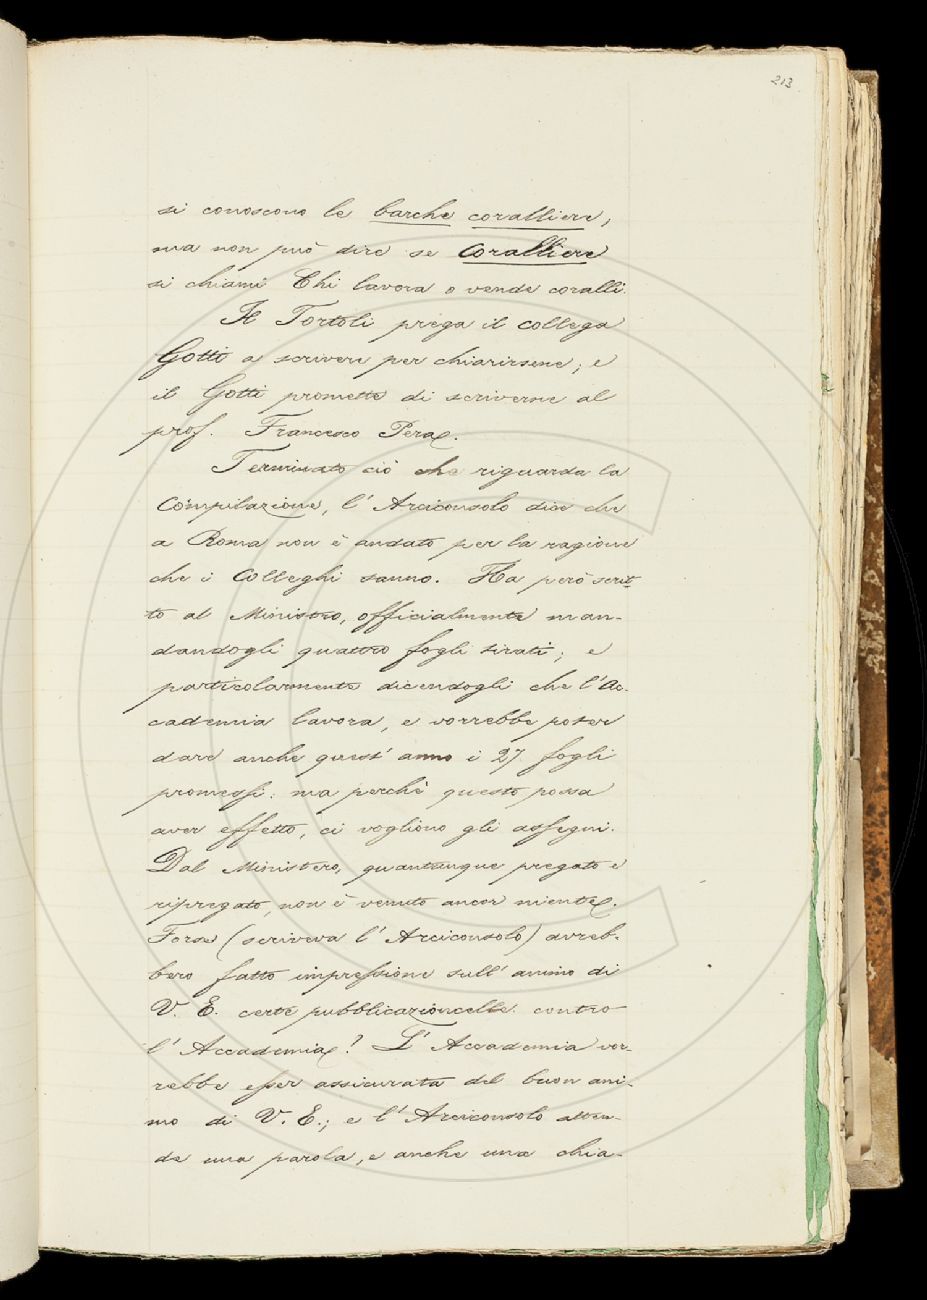 213
si conoscono le barche coralliere,
ma non può dire se Coralliere
si chiami Chi lavora o vende coralli.
Il Tortoli prega il collega
Gotti a scrivere per chiarirsene; e
il Gotti promette di scriverne al
prof. Francesco Pera.
Terminato ciò che riguarda la
Compilazione, l' Arciconsolo dice che
a Roma non è andato per la ragione
che i Colleghi sanno. Ha però scrit-
to al Ministro, officialmente man-
dandogli quattro fogli tirati; e
particolarmente dicendogli che l'Ac-
cademia lavora, e vorrebbe poter
dare anche quest' anno i 27 fogli
promessi: ma perchè questo possa
aver effetto, ci vogliono gli assegni.
Dal Ministero, quantunque pregato e
ripregato, non è venuto ancor niente.
Forse (scriveva l' Arciconsolo) avreb-
bero fatto impressione sull' animo di
V. E. certe pubblicazioncelle contro
l' Accademia? L' Accademia vor-
rebbe esser assicurata del buon ani-
mo di V. E.; e l' Arciconsolo atten-
de una parola, e anche una chia-